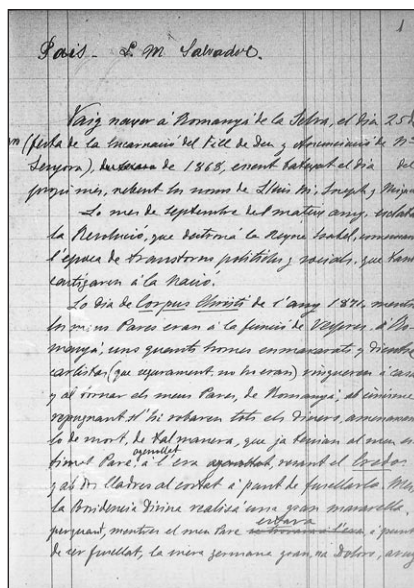 1
Pais - L. M. Salvador.
Vaig nayxer á Romanyá de la Selva, el dia 25 d
(festa de la Encarnació del Fill de Deu y Anunciació de Nª
Senyora), de 1868, essent batejat el dia del
propi mes, rebent los noms de Lluis Mª, Joseph y
Lo mes de septembre del mateix any, esclatá
la Revolució, que destroná la Reyna Isabel,
l'época de trastorns politichs y socials, que tant
castigaren á la Nació.
Lo dia de Corpus Christi de l'any 1871, mentre
los meus Pares eran á la funció de Vespres, á Ro-
manyá, uns quants homes enmascarats y dientse
carlistas (que segurament no ho eran) vingueren á casa
y al tornar els meus Pares, de Romanyá, ab cinisme
repugnant, s'hi robaren tots els diners, amenassant-
lo de mort, de tal manera, que ja tenian al meu es-
timat Pare, agenollat á l'era resant el Credo
y ab dos lladres al costat á punt de fusellarlo. Mes
la Providencia Divina realisá una gran maravella,
perquant, mentres el meu Pare estava á punt
de ser fusellat, la meva germana gran, na Dolors,